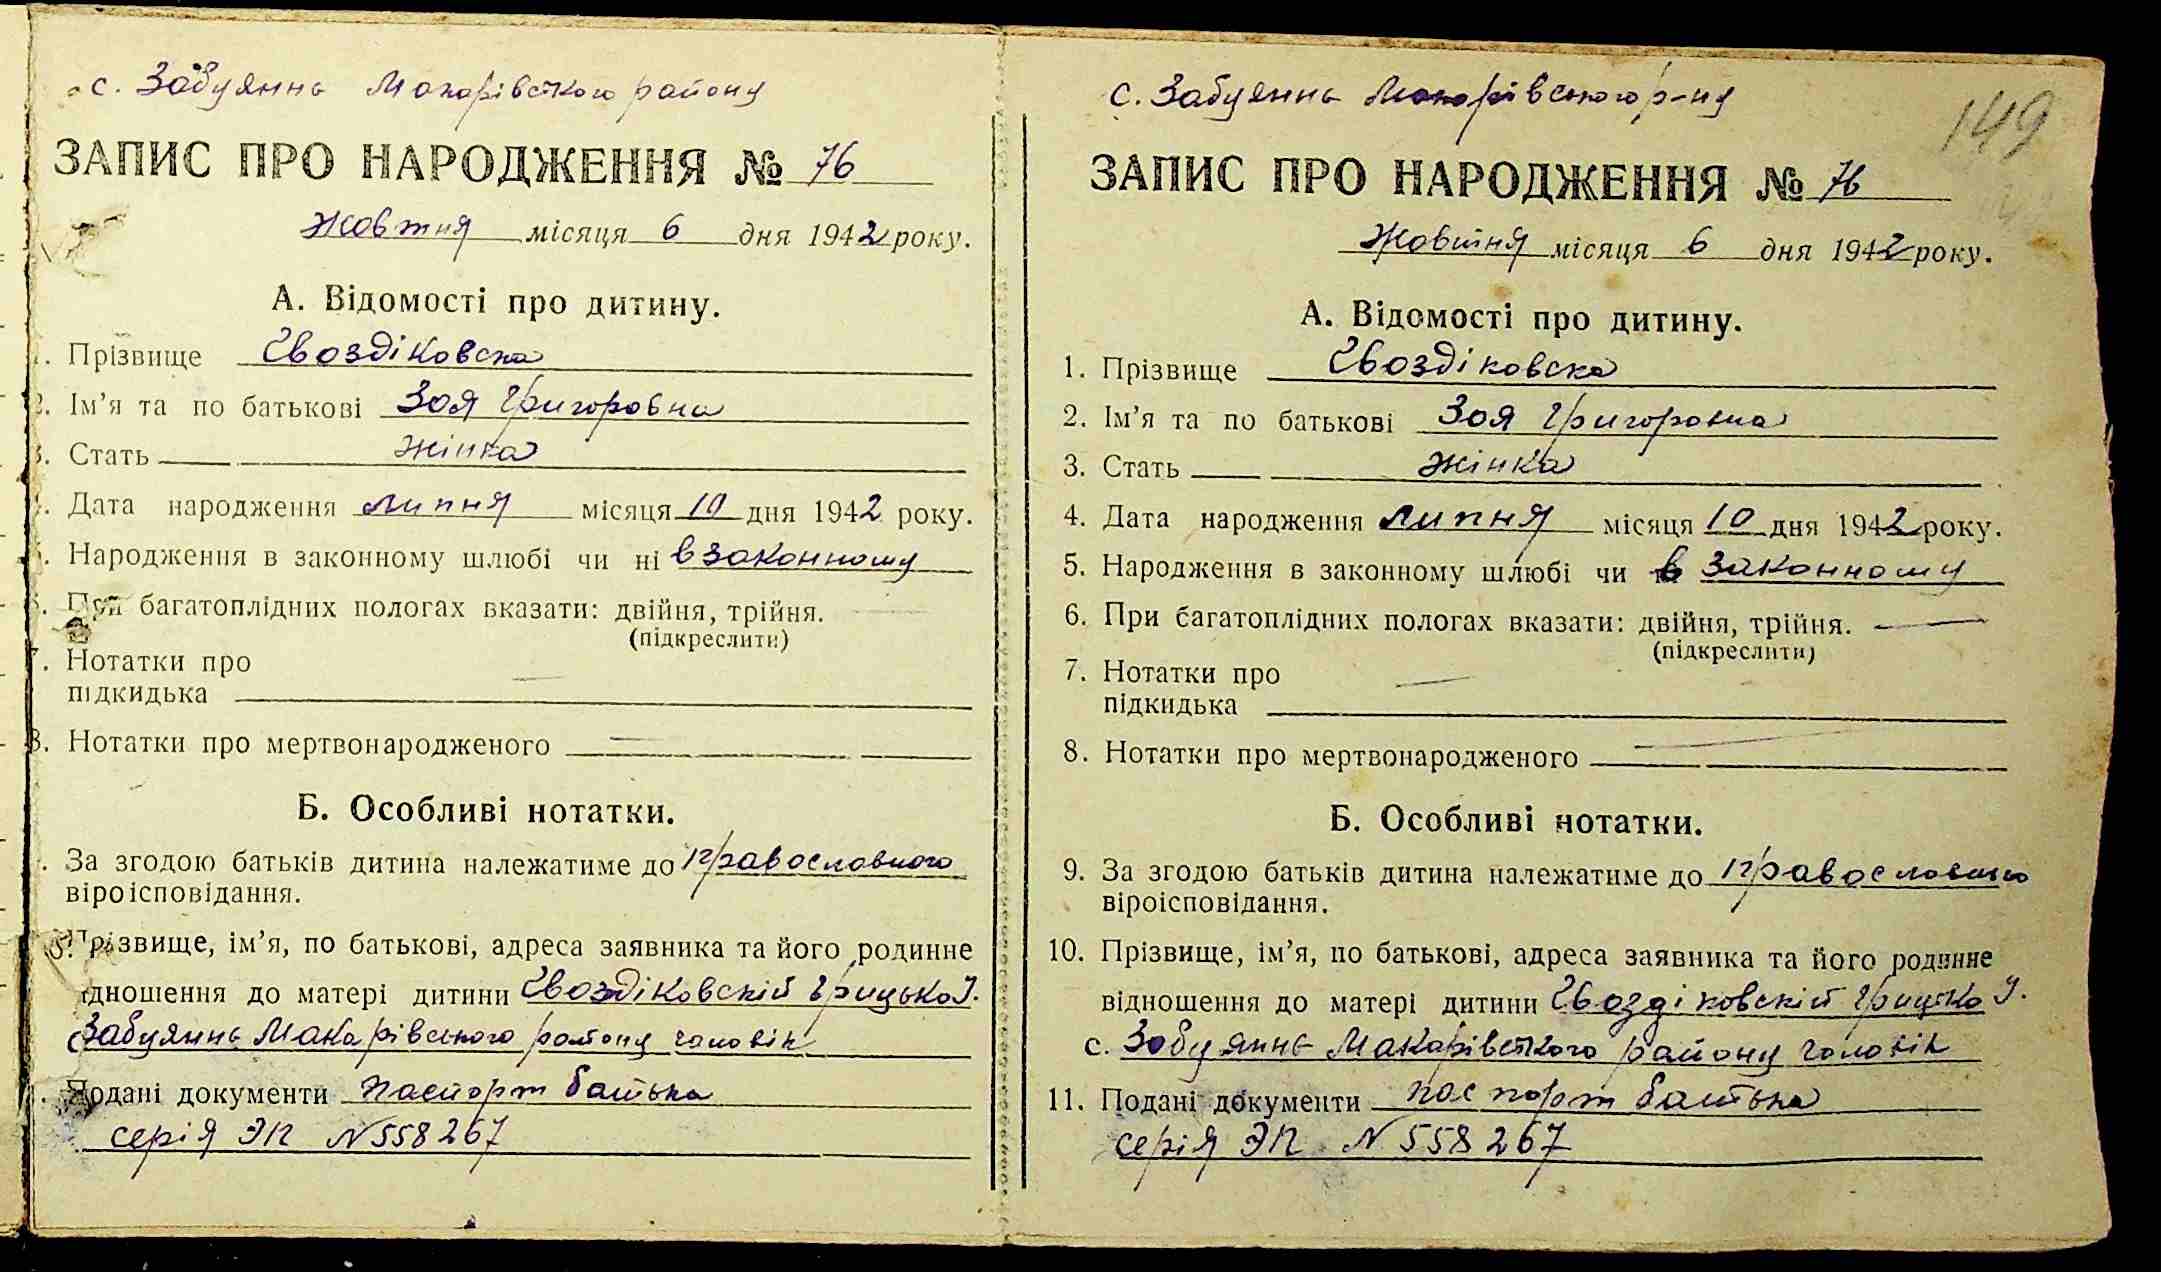 с. Забуяннь Макарівського району
ЗАПИС ПРО НАРОДЖЕННЯ № 76
Жовтня місяця 6 дня 1942 року.
А. Відомості про дитину.
Прізвище Гвоздіковска
2. Ім'я та по батькові Зоя Григоровна
3. Стать жінка
Дата народження липня місяця 10 дня 1942 року.
Народження в законному шлюбі чи ні в законному
При багатоплідних пологах вказати: двійня, трійня.
(підкреслити)
Нотатки про
підкидька —
8. Нотатки про мертвонародженого —
Б. Особливі нотатки.
За згодою батьків дитина належатиме до православного
віроісповідання.
Прізвище, ім'я, по батькові, адреса заявника та його родинне
ідношення до матері дитини Гвоздіковскій Грицько І.
с. Забуяннь Макарівського району чоловік
Подані документи паспорт батька
серія ЭП N 558267
с. Забуяннь Макарівського р-ну
149
ЗАПИС ПРО НАРОДЖЕННЯ № 76
Жовтня місяця 6 дня 1942 року.
А. Відомості про дитину.
1. Прізвище Гвоздіковска
2. Ім'я та по батькові Зоя Григоровна
3. Стать жінка
4. Дата народження липня місяця 10 дня 1942 року.
5. Народження в законному шлюбі чи в законному
6. При багатоплідних пологах вказати: двійня, трійня. —
(підкреслити)
7. Нотатки про
підкидька —
8. Нотатки про мертвонародженого —
Б. Особливі нотатки.
9. За згодою батьків дитина належатиме до православного
віроісповідання.
10. Прізвище, ім'я, по батькові, адреса заявника та його родинне
відношення до матері дитини Гвоздіковскій Грицько І.
с. Забуяннь Макарівського району чоловік
11. Подані документи паспорт батька
серія ЭП N 558267